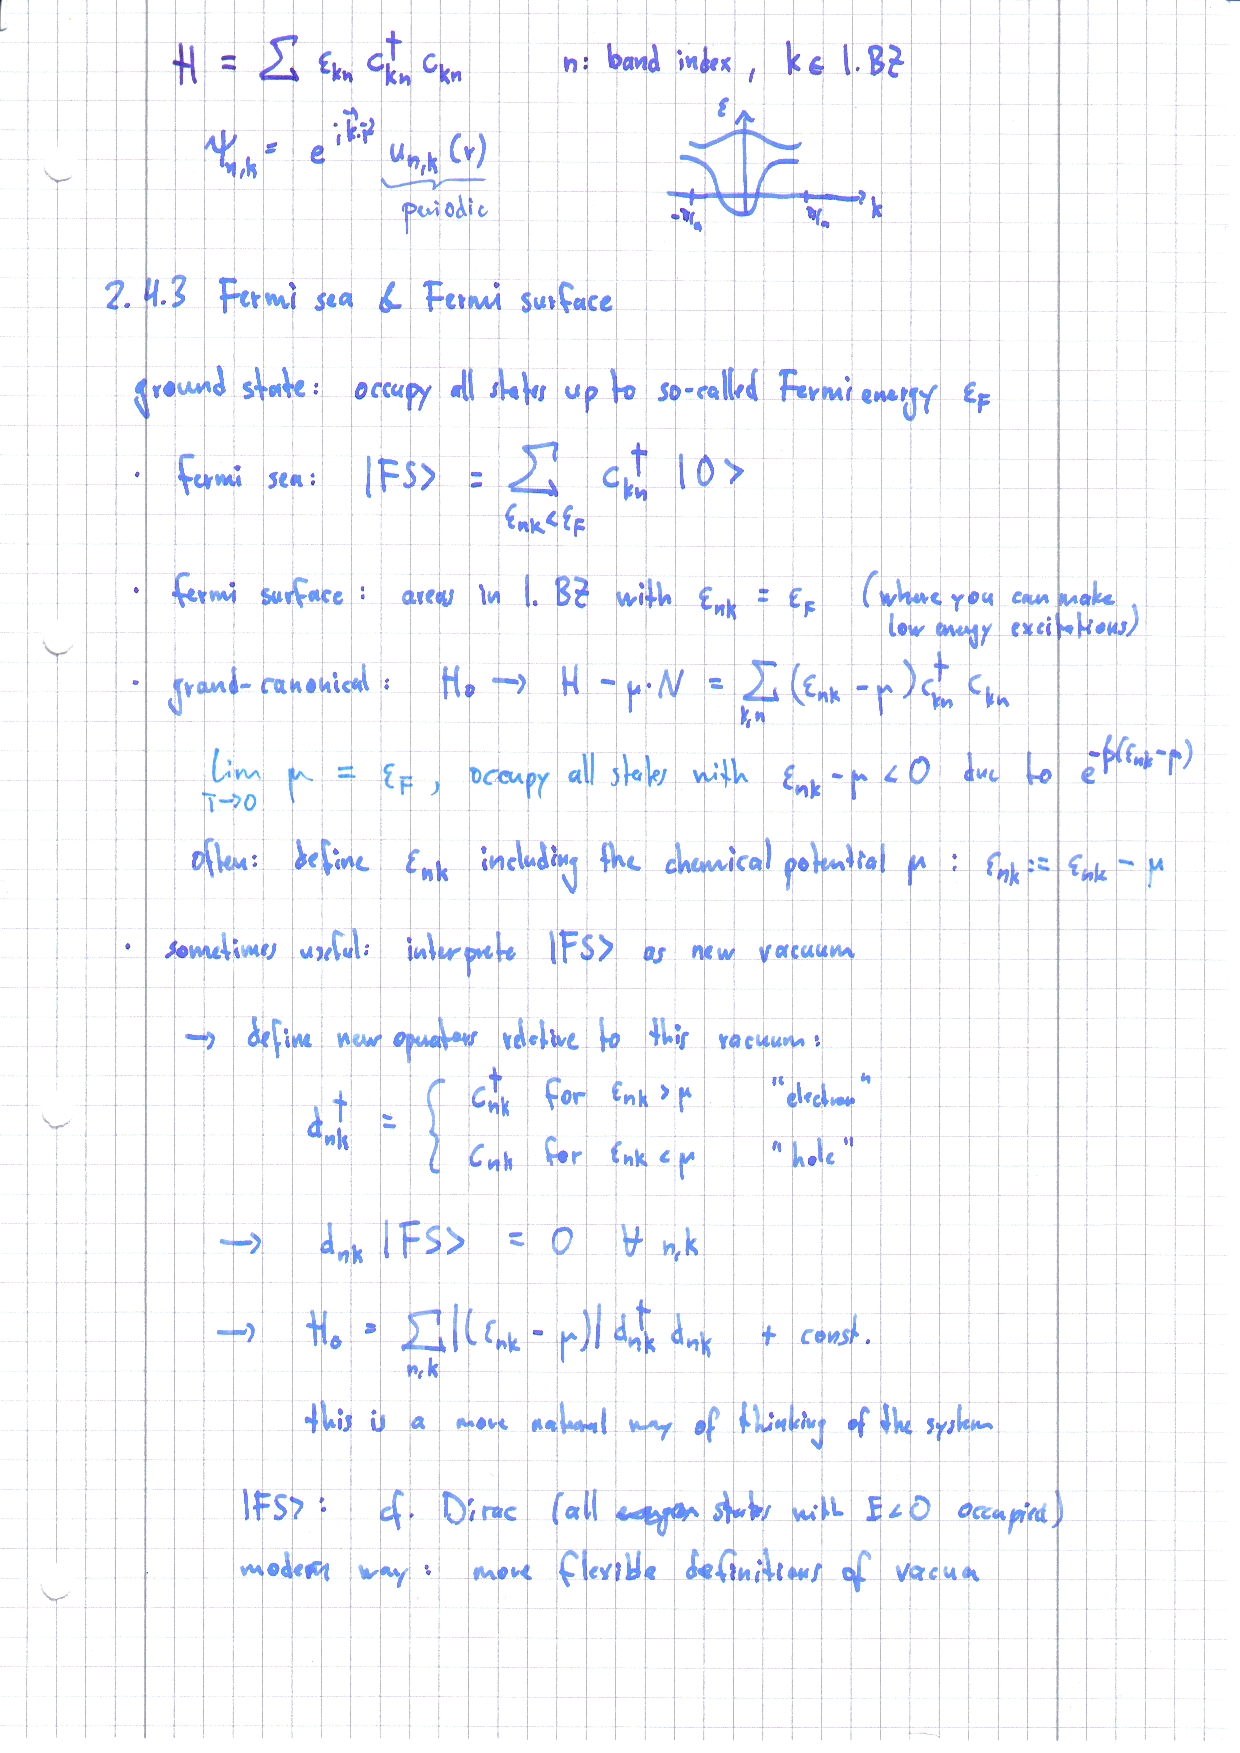 H = ∑ ε_kn c†_kn c_kn    n: band index, k ∈ 1. BZ
ε
ψ_n,k = e^{i k⃗·r⃗} u_n,k (r)
periodic
-π/a    π/a    k
2.4.3 Fermi sea & Fermi surface
ground state: occupy all states up to so-called Fermi energy ε_F
· fermi sea: |FS> = ∑_{ε_nk < ε_F} c†_kn |0>
· fermi surface: areas in 1. BZ with ε_nk = ε_F (where you can make
low energy excitations)
· grand-canonical: H₀ → H - μ·N = ∑_{k,n} (ε_nk - μ) c†_kn c_kn
lim_{T→0} μ = ε_F, occupy all states with ε_nk - μ < 0 due to e^{-β(ε_nk-μ)}
often: define ε_nk including the chemical potential μ: ε_nk := ε_nk - μ
· sometimes useful: interprete |FS> as new vacuum
→ define new operators relative to this vacuum:
d†_nk = { c†_nk for ε_nk > μ "electron"
c_nk for ε_nk < μ "hole"
→ d_nk |FS> = 0 ∀ n,k
→ H₀ = ∑_{n,k} |(ε_nk - μ)| d†_nk d_nk + const.
this is a more natural way of thinking of the system
|FS>: cf. Dirac (all states with E<0 occupied)
modern way: more flexible definitions of vacua